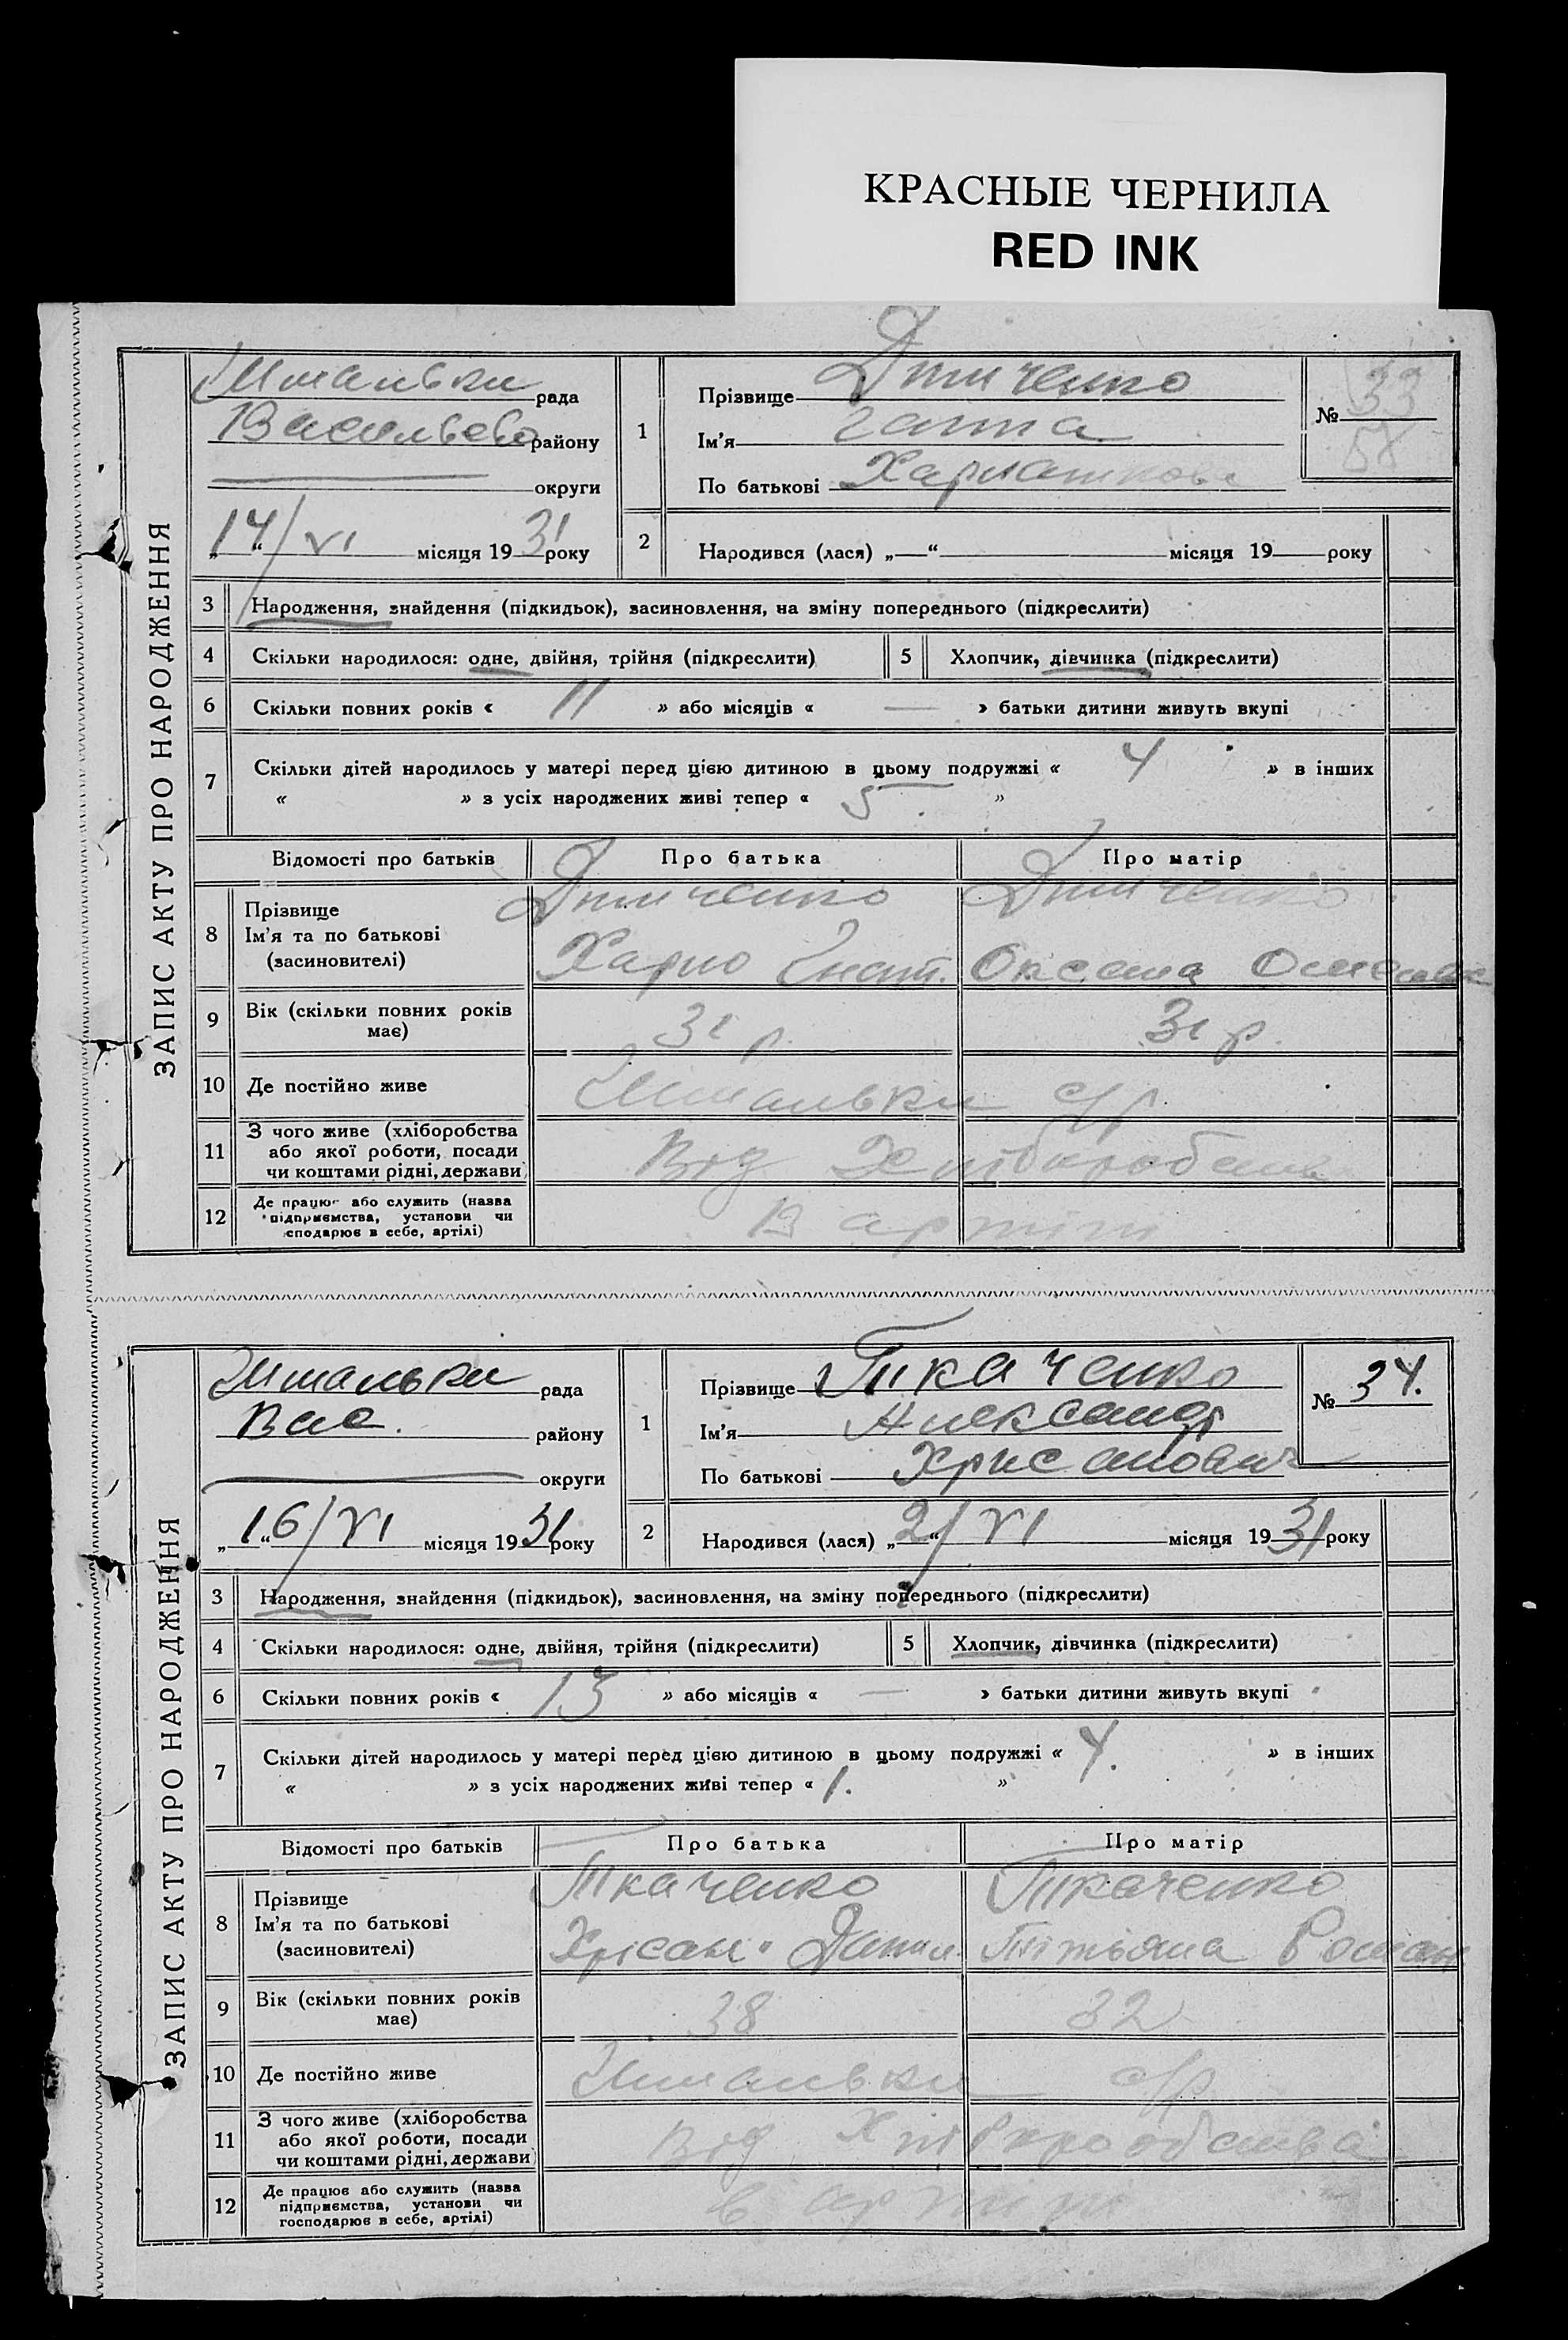 КРАСНЫЕ ЧЕРНИЛА
RED INK
ЗАПИС АКТУ ПРО НАРОДЖЕННЯ
рада
району
округи
„14“/VI місяця 1931 року
1
Прізвище
Ім'я Ганна
По батькові
№ 33
58
2 Народився (лася) „ “ місяця 19 року
3 Народження, знайдення (підкидьок), засиновлення, на зміну попереднього (підкреслити)
4 Скільки народилося: одне, двійня, трійня (підкреслити)
5 Хлопчик, дівчинка (підкреслити)
6 Скільки повних років « 11 » або місяців « — » батьки дитини живуть вкупі
7 Скільки дітей народилось у матері перед цією дитиною в цьому подружжі « 4 » в інших
« » з усіх народжених живі тепер « 5 »
Відомості про батьків Про батька Про матір
8 Прізвище
Ім'я та по батькові
(засиновителі)
Оксана
9 Вік (скільки повних років має) 31 р. 31 р.
10 Де постійно живе с/р
11 З чого живе (хліборобства
або якої роботи, посади
чи коштами рідні, держави)
Від
12 Де працює або служить (назва
підприємства, установи чи
господарює в себе, артілі)
В артілі
ЗАПИС АКТУ ПРО НАРОДЖЕННЯ
рада
Вас. району
округи
„16“/VI місяця 1931 року
1
Прізвище Ткаченко
Ім'я Александр
По батькові Хрисанович
№ 34.
2 Народився (лася) „2“/VI місяця 1931 року
3 Народження, знайдення (підкидьок), засиновлення, на зміну попереднього (підкреслити)
4 Скільки народилося: одне, двійня, трійня (підкреслити)
5 Хлопчик, дівчинка (підкреслити)
6 Скільки повних років « 13 » або місяців « — » батьки дитини живуть вкупі
7 Скільки дітей народилось у матері перед цією дитиною в цьому подружжі « 4. » в інших
« » з усіх народжених живі тепер « 1. »
Відомості про батьків Про батька Про матір
8 Прізвище
Ім'я та по батькові
(засиновителі)
Ткаченко Ткаченко
Хрісан. Данил. Тітьяна Роман
9 Вік (скільки повних років має) 38 32
10 Де постійно живе с/р
11 З чого живе (хліборобства
або якої роботи, посади
чи коштами рідні, держави)
Від
12 Де працює або служить (назва
підприємства, установи чи
господарює в себе, артілі)
в артілі